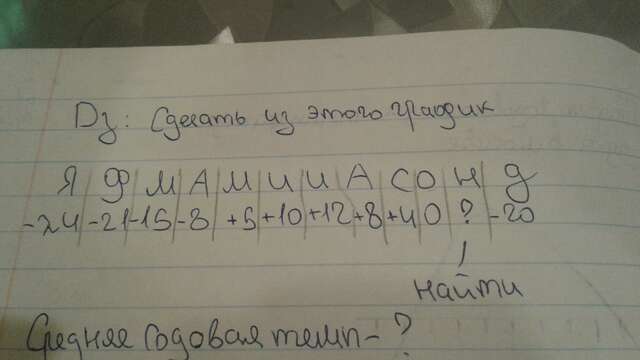 Dз: Сделать из этого графдик
Я Ф М А М И И А С О Н Д
-24 -21 -15 -8 +5 +10 +12 +8 +4 0 ? -20
найти
Средняе годовая темп- ?